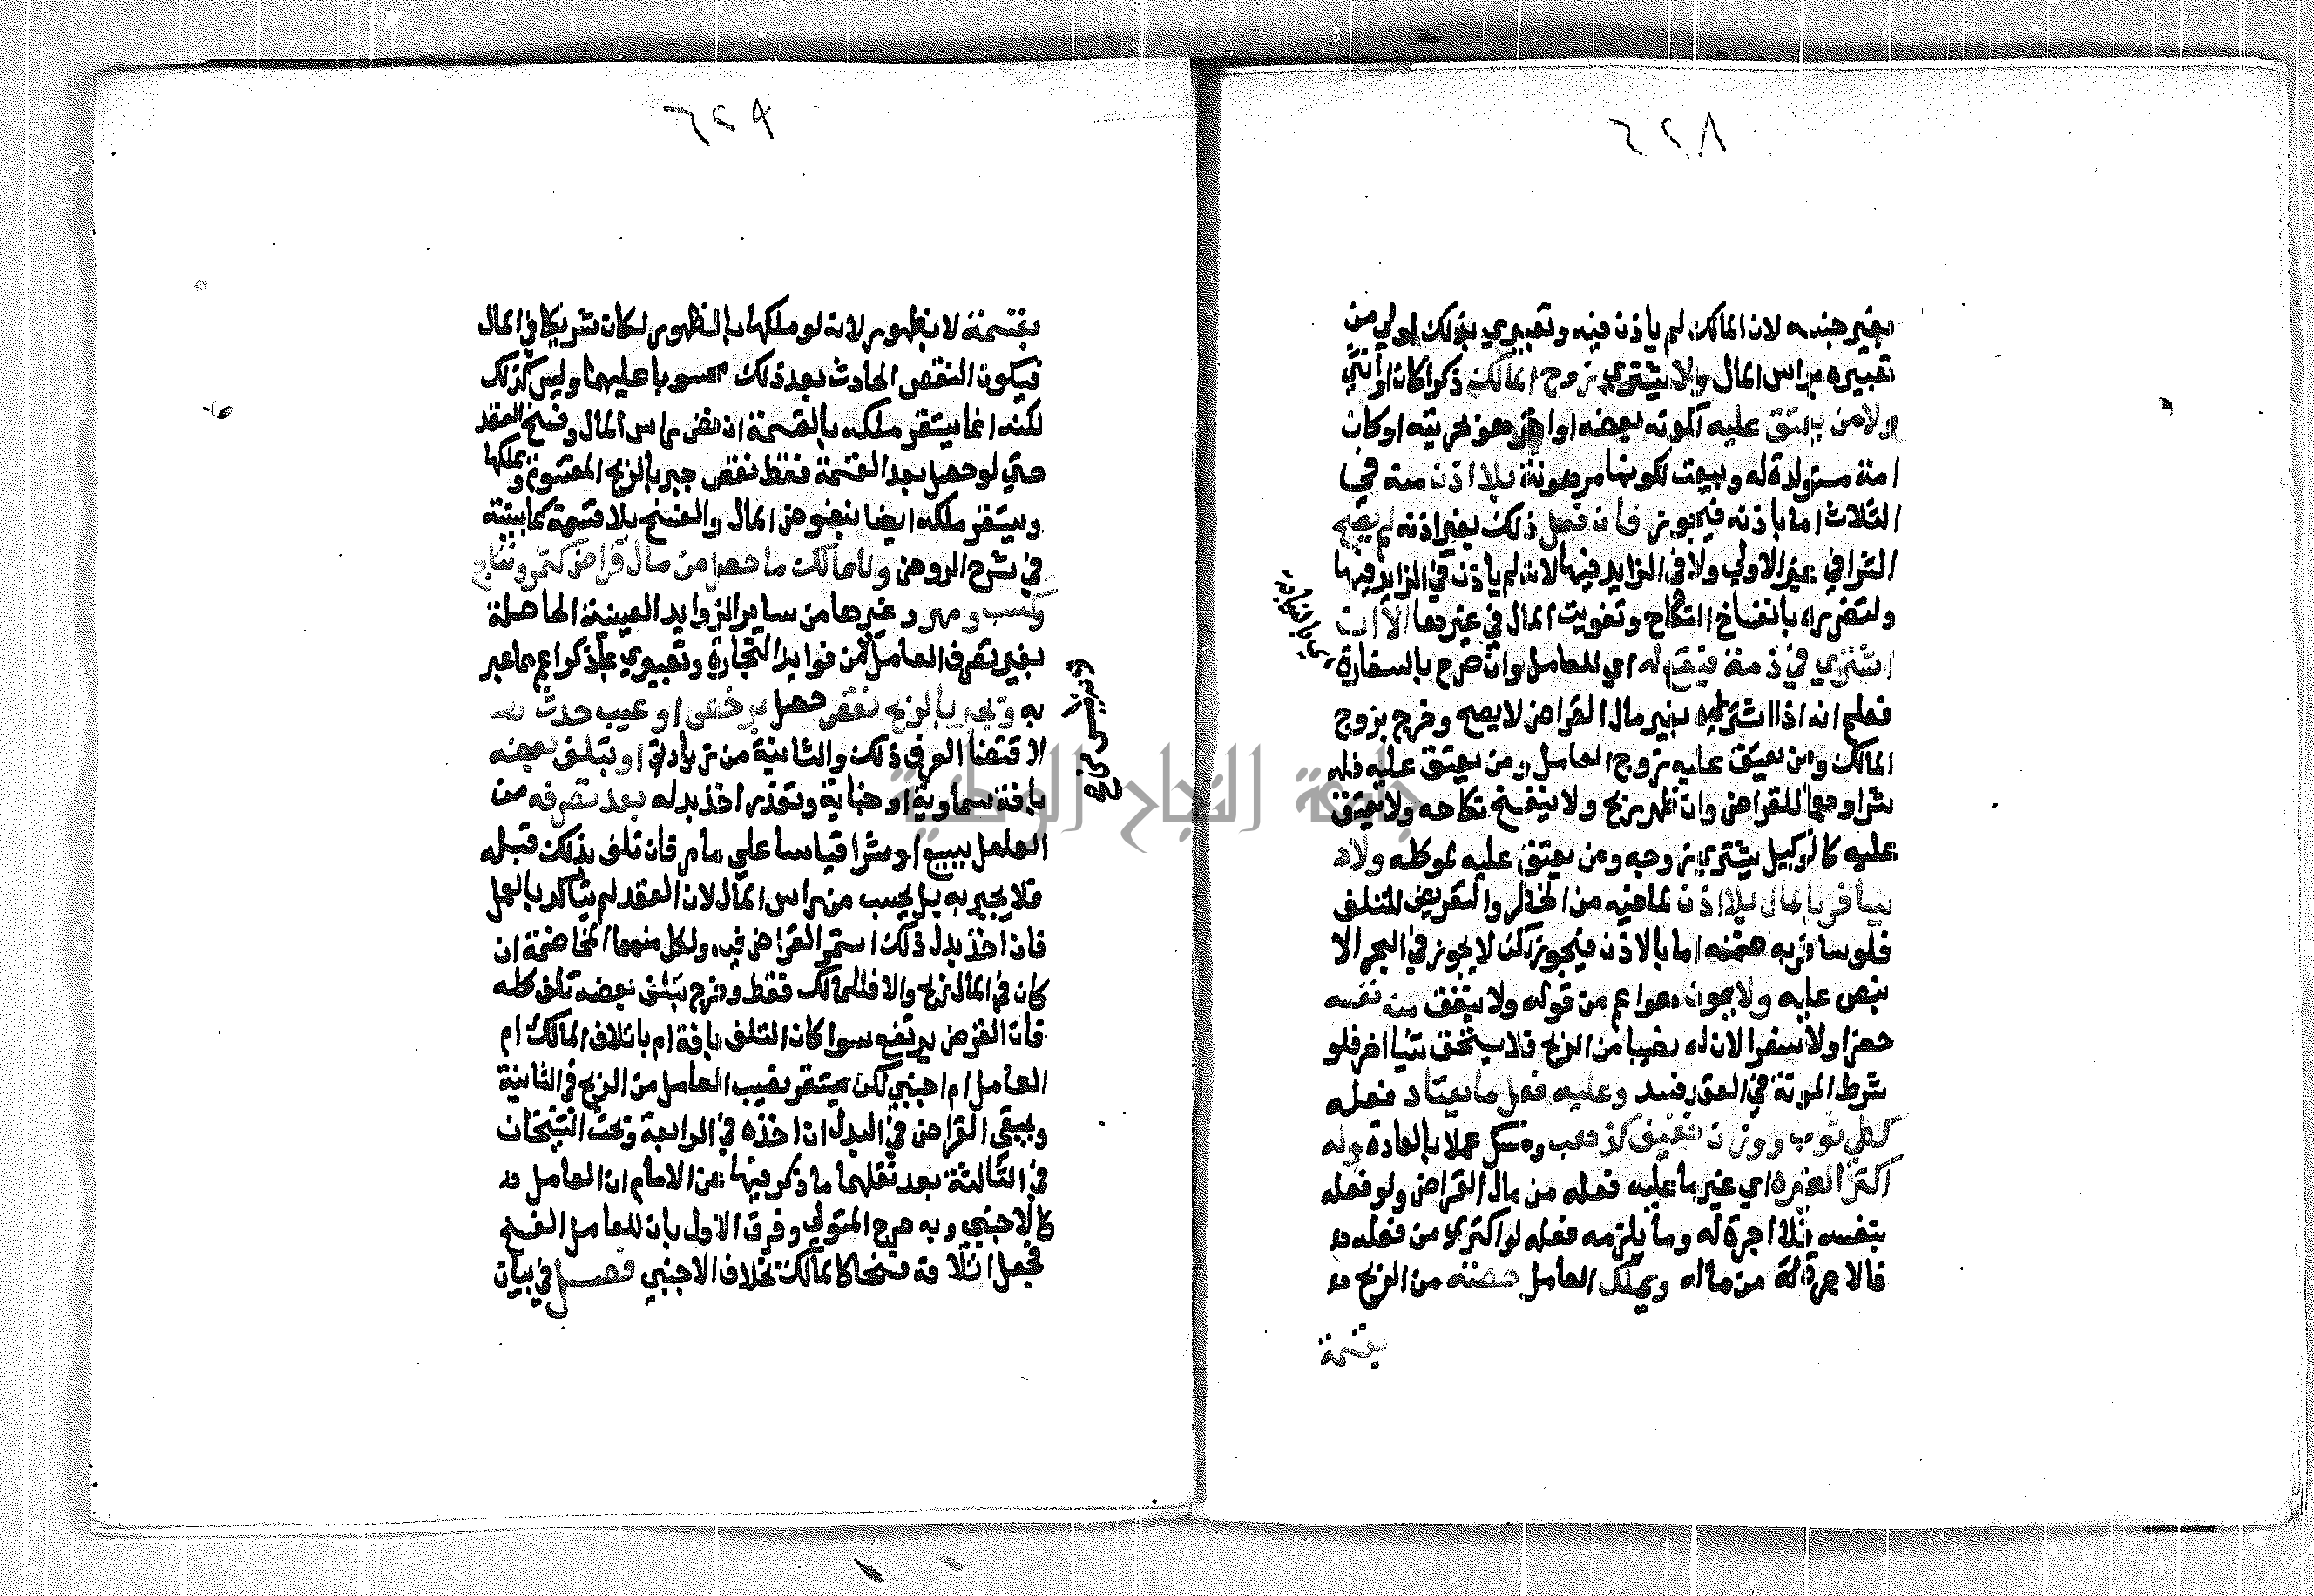 ٦٢٨
بغير جنسه لان المالك لم ياذن فيه وتعبيري بذلك اولي من
تعبيره براس المال ولا يشتري زوج المالك ذكرا كان او انثي
ولا من يعتق عليه لكونه بعضه او اقر هو بحريته او كان
امة مستولدة له وبيعت لكونها مرهونة بلا اذن منه في
الثلاث اما باذنه فيجوز فان فعل ذلك بغير اذنه لم يصح
الشرا في غير الاولي ولا في الزايد فيها لانه لم ياذن في الزايد فيها
ولتضرره بانفساخ النكاح وتفويت المال في غيرها الا ان
اشتري في ذمة فيقع له اي للعامل وان صرح بالسفارة
فعلم انه اذا اشتراه بغير مال القراض لا يصح وخرج بزوج
المالك ومن يعتق عليه زوج العامل ومن يعتق عليه فله
شراوهما للقراض وان ظهر ربح ولا ينفسخ نكاحه ولا يعتق
عليه كالوكيل يشتري زوجه ومن يعتق عليه لموكله ولا
يسافر بالمال بلا اذن لما فيه من الخطر والتعريض للتلف
فلو سافر به ضمنه اما بالاذن فيجوز لكن لا يجوز في البحر الا
بنص عليه ولا يمون هو اعم من قوله ولا ينفق منه نفسه
حضرا ولا سفرا لان له نصيبا من الربح فلا يستحق شيا اخر فلو
شرط المونة في العقد فسد وعليه فعل ما يعتاد فعله
كطي ثوب ووزن خفيف كذهب ومسك عملا بالعادة وله
اكترا لغيره اي غير ما عليه فعله من مال القراض ولو فعله
بنفسه فلا اجرة له وما يلزمه فعله لو اكتري من فعله
فالاجرة من ماله ويملك العامل حصته من الربح
بقسمة
٦٢٩
بقسمة لا بظهور لانه لو ملكها بالظهور لكان شريكا في المال
فيكون النقص الحادث بعد ذلك محسوبا عليهما وليس كذلك
لكنه انما يستقر ملكه بالقسمة ان نض راس المال وفسخ العقد
حتي لو حصل بعد القسمة فقط نقص جبر بالربح المقسوم ويملكها
ويستقر ملكه ايضا بنضوض المال والفسخ بلا قسمة كما بينته
في شرح الروض وللمالك ما حصل من مال قراض كثمر ونتاج
وكسب ومهر وغيرها من ساير الزوايد العينية الحاصلة
بغير تصرف العامل لانه من فوايد التجارة وتعبيري بما ذكر اعم مما عبر
به ويجبر بالربح نقص حصل برخص او عيب حدث
لاقتضا العرف ذلك والثانية من زيادتي او بتلف بعضه
بافة سماوية او جناية وتعذر اخذ بدله بعد تصرفه من
العامل ببيع او شرا قياسا علي ما مر فان تلف بذلك قبله
فلا يجبر به بل يحسب من راس المال لان العقد لم يتاكد بالعمل
فان اخذ بدل ذلك استمر القراض فيه ولكل منهما المخاصمة ان
كان في المال ربح والا فللمالك فقط وخرج بتلف بعضه تلف كله
فان القراض يرتفع سوا كان التلف بافة ام باتلاف المالك ام
العامل ام اجنبي لكن يستقر نصيب العامل من الربح في الثانية
ويبقي القراض في البدل ان اخذه في الرابعة وبحث الشيخان
في الثالثة بعد نقلهما ما ذكر فيها عن الامام ان العامل
كالاجنبي وبه صرح المتولي وفرق الاول بان للعامل الفسخ
فجعل اتلافه فسخا كالمالك بخلاف الاجنبي فصل في بيان